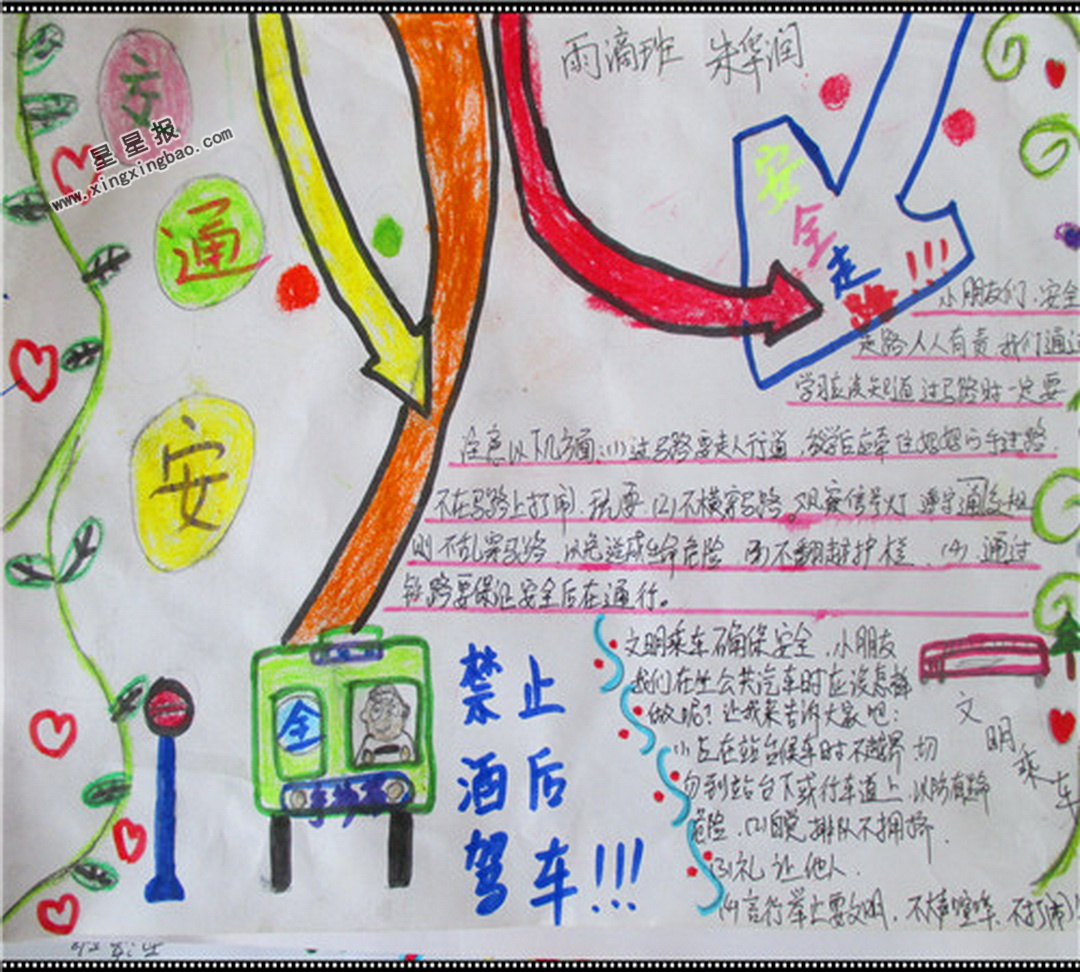 雨滴班 朱华润
交
星星报
www.xingxingbao.com
通
安
全
安全走路!!!
小朋友们、安全
走路人人有责.我们通过
学习应该知道过马路时一定要
注意以下几方面:(1)过马路要走人行道,放学后应牵住妈妈的手过路.
不在马路上打闹、玩耍(2)不横穿马路。观察信号灯 遵守通交规
则 不乱穿马路 以免造成生命危险 (3)不翻越护栏. (4).通过
铁路要保证安全后在通行。
禁止
酒后
驾车!!!
文明乘车确保安全.小朋友
我们在坐公共汽车时应该怎样
做呢?让我来告诉大家吧:
(1)在站台候车时不越界 切
勿到站台下或行车道上.以防有
危险.(2)自觉排队不拥挤.
(3)礼让他人.
(4)言行举止要文明,不大声喧哗、不打闹!
文明乘车